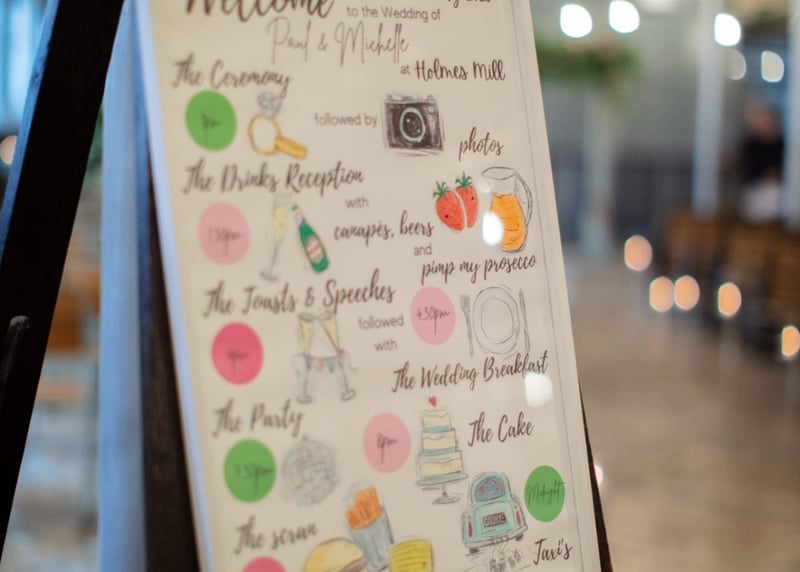 Welcome
to the Wedding of
Paul & Michelle
at Holmes Mill
The Ceremony
1pm
followed by
photos
The Drinks Reception
1:30pm
with
canapès, beers
and
pimp my prosecco
The Toasts & Speeches
4pm
followed
with
4:30pm
The Wedding Breakfast
The Party
7:30pm
8pm
The Cake
Midnight
The scran
Taxi's